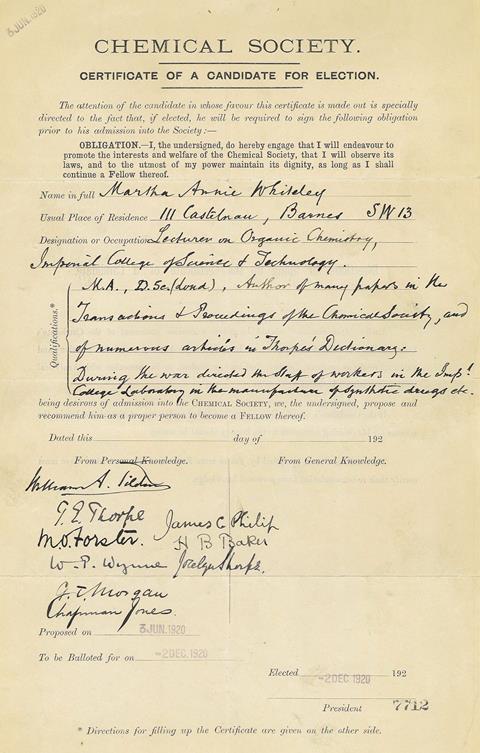 3 JUN. 1920
CHEMICAL SOCIETY.
CERTIFICATE OF A CANDIDATE FOR ELECTION.
The attention of the candidate in whose favour this certificate is made out is specially
directed to the fact that, if elected, he will be required to sign the following obligation
prior to his admission into the Society :—
OBLIGATION.—I, the undersigned, do hereby engage that I will endeavour to
promote the interests and welfare of the Chemical Society, that I will observe its
laws, and to the utmost of my power maintain its dignity, as long as I shall
continue a Fellow thereof.
Name in full Martha Annie Whiteley
Usual Place of Residence 111 Castelnau, Barnes SW13
Designation or Occupation Lecturer on Organic Chemistry,
Imperial College of Science & Technology.
Qualifications.*
M.A., D.Sc. (Lond), Author of many papers in the
Transactions & Proceedings of the Chemical Society, and
of numerous articles in Thorpe's Dictionary.
During the war directed the staff of workers in the Impl.
College Laboratory in the manufacture of synthetic drugs etc.
being desirous of admission into the CHEMICAL SOCIETY, we, the undersigned, propose and
recommend him as a proper person to become a FELLOW thereof.
Dated this day of 192
From Personal Knowledge. From General Knowledge.
William A. Tilden
T. E. Thorpe James C Philip
M.O. Forster. H B Baker
W. P. Wynne Jocelyn Thorpe.
G. T. Morgan
Chapman Jones.
Proposed on 3 JUN. 1920
To be Balloted for on -2 DEC. 1920
Elected -2 DEC. 1920 192
President 7712
* Directions for filling up the Certificate are given on the other side.